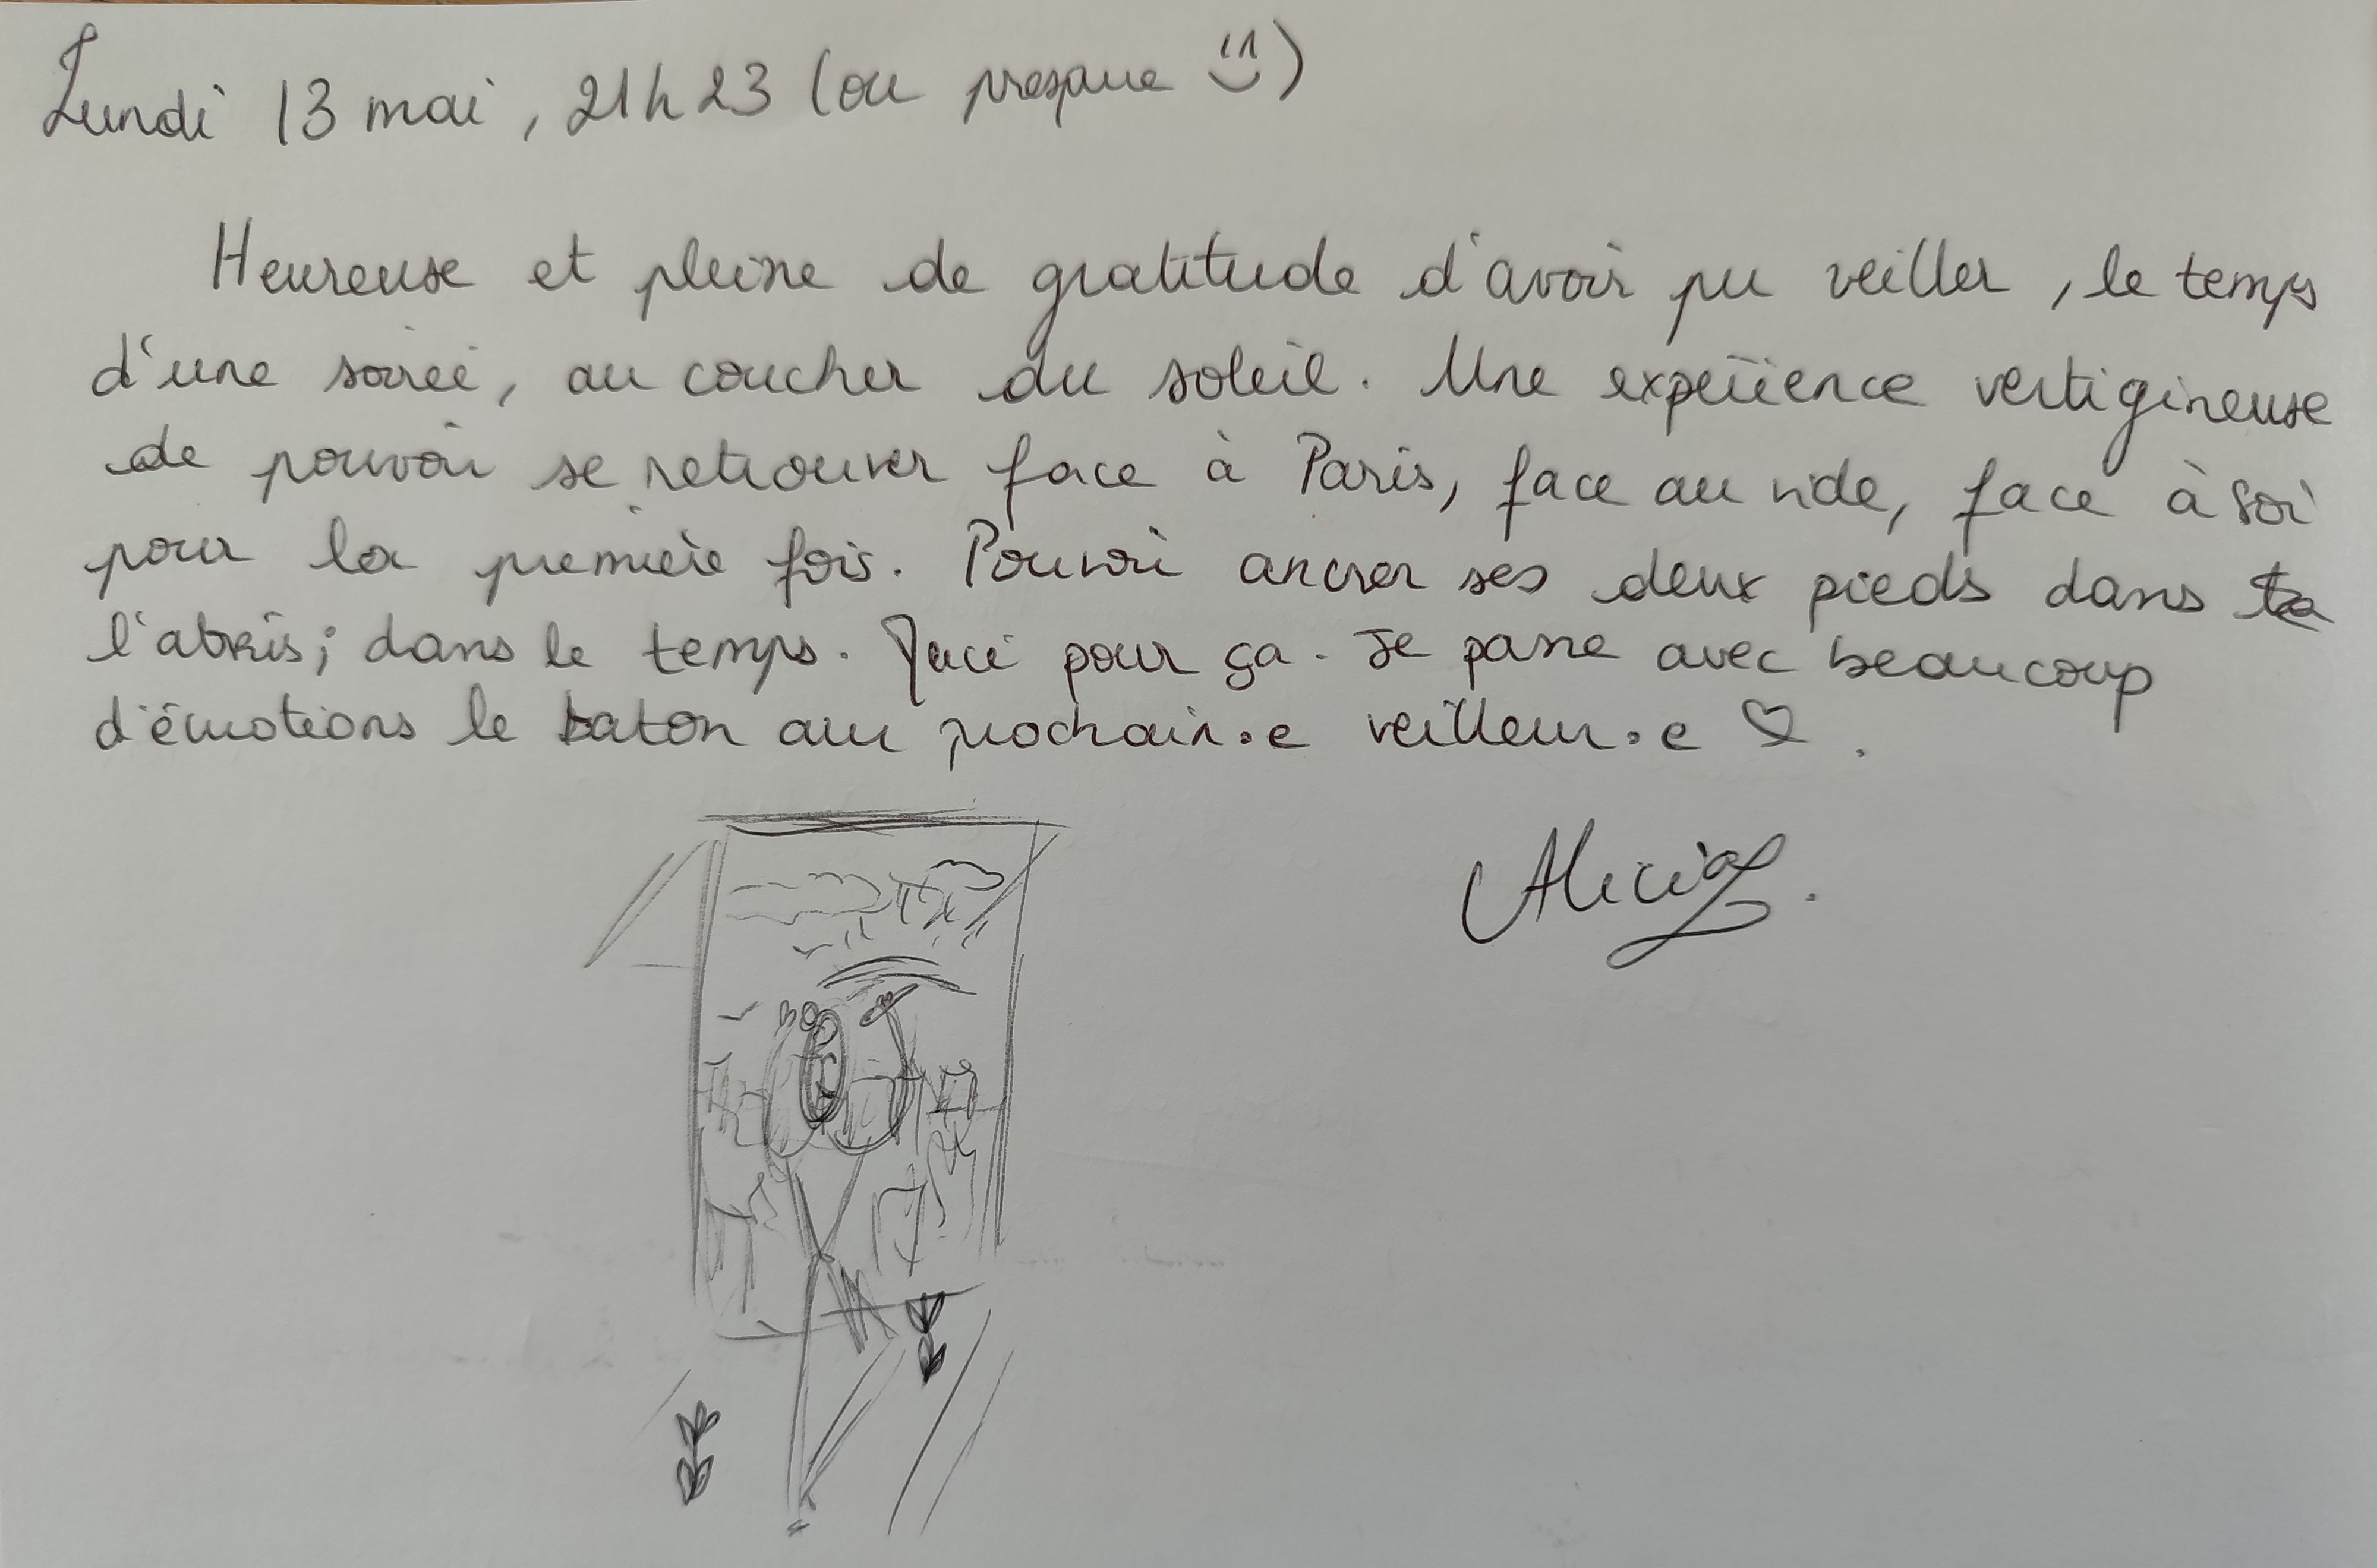 Lundi 13 mai, 21h23 (ou presque
Heureuse et pleine de gratitude d'avoir pu veiller, le temps
d'une soirée, au coucher du soleil. Une expérience vertigineuse
de pouvoir se retrouver face à Paris, face au vide, face à soi
pour la première fois. Pouvoir ancrer ses deux pieds dans
l'abris; dans le temps. Merci pour ça. Je passe avec beaucoup
d'émotions le baton au prochain.e veilleur.e ♡.
Alicia.